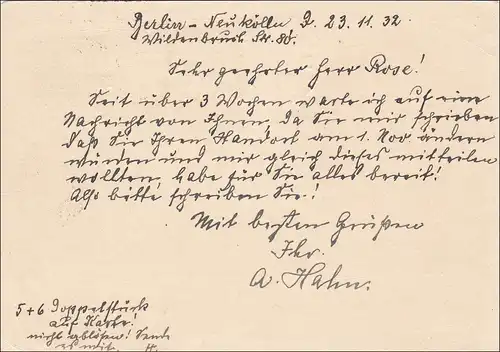 Berlin-Neukölln D. 23.11.32
Wildenbruch Str. 80.
Sehr geehrter Herr Rose!
Seit über 3 Wochen warte ich auf eine
Nachricht von Ihnen, da Sie mir schrieben
daß Sie Ihren am 1. Nov. ändern
würden und mir gleich dieses mitteilen
wollten, habe für Sie alles bereit!
Also bitte schreiben Sie!
Mit besten Grüßen
Ihr
A. Hahn.
5+6 Doppelstück
auf Karte!
nicht ablösen! Sende
es mit. H.